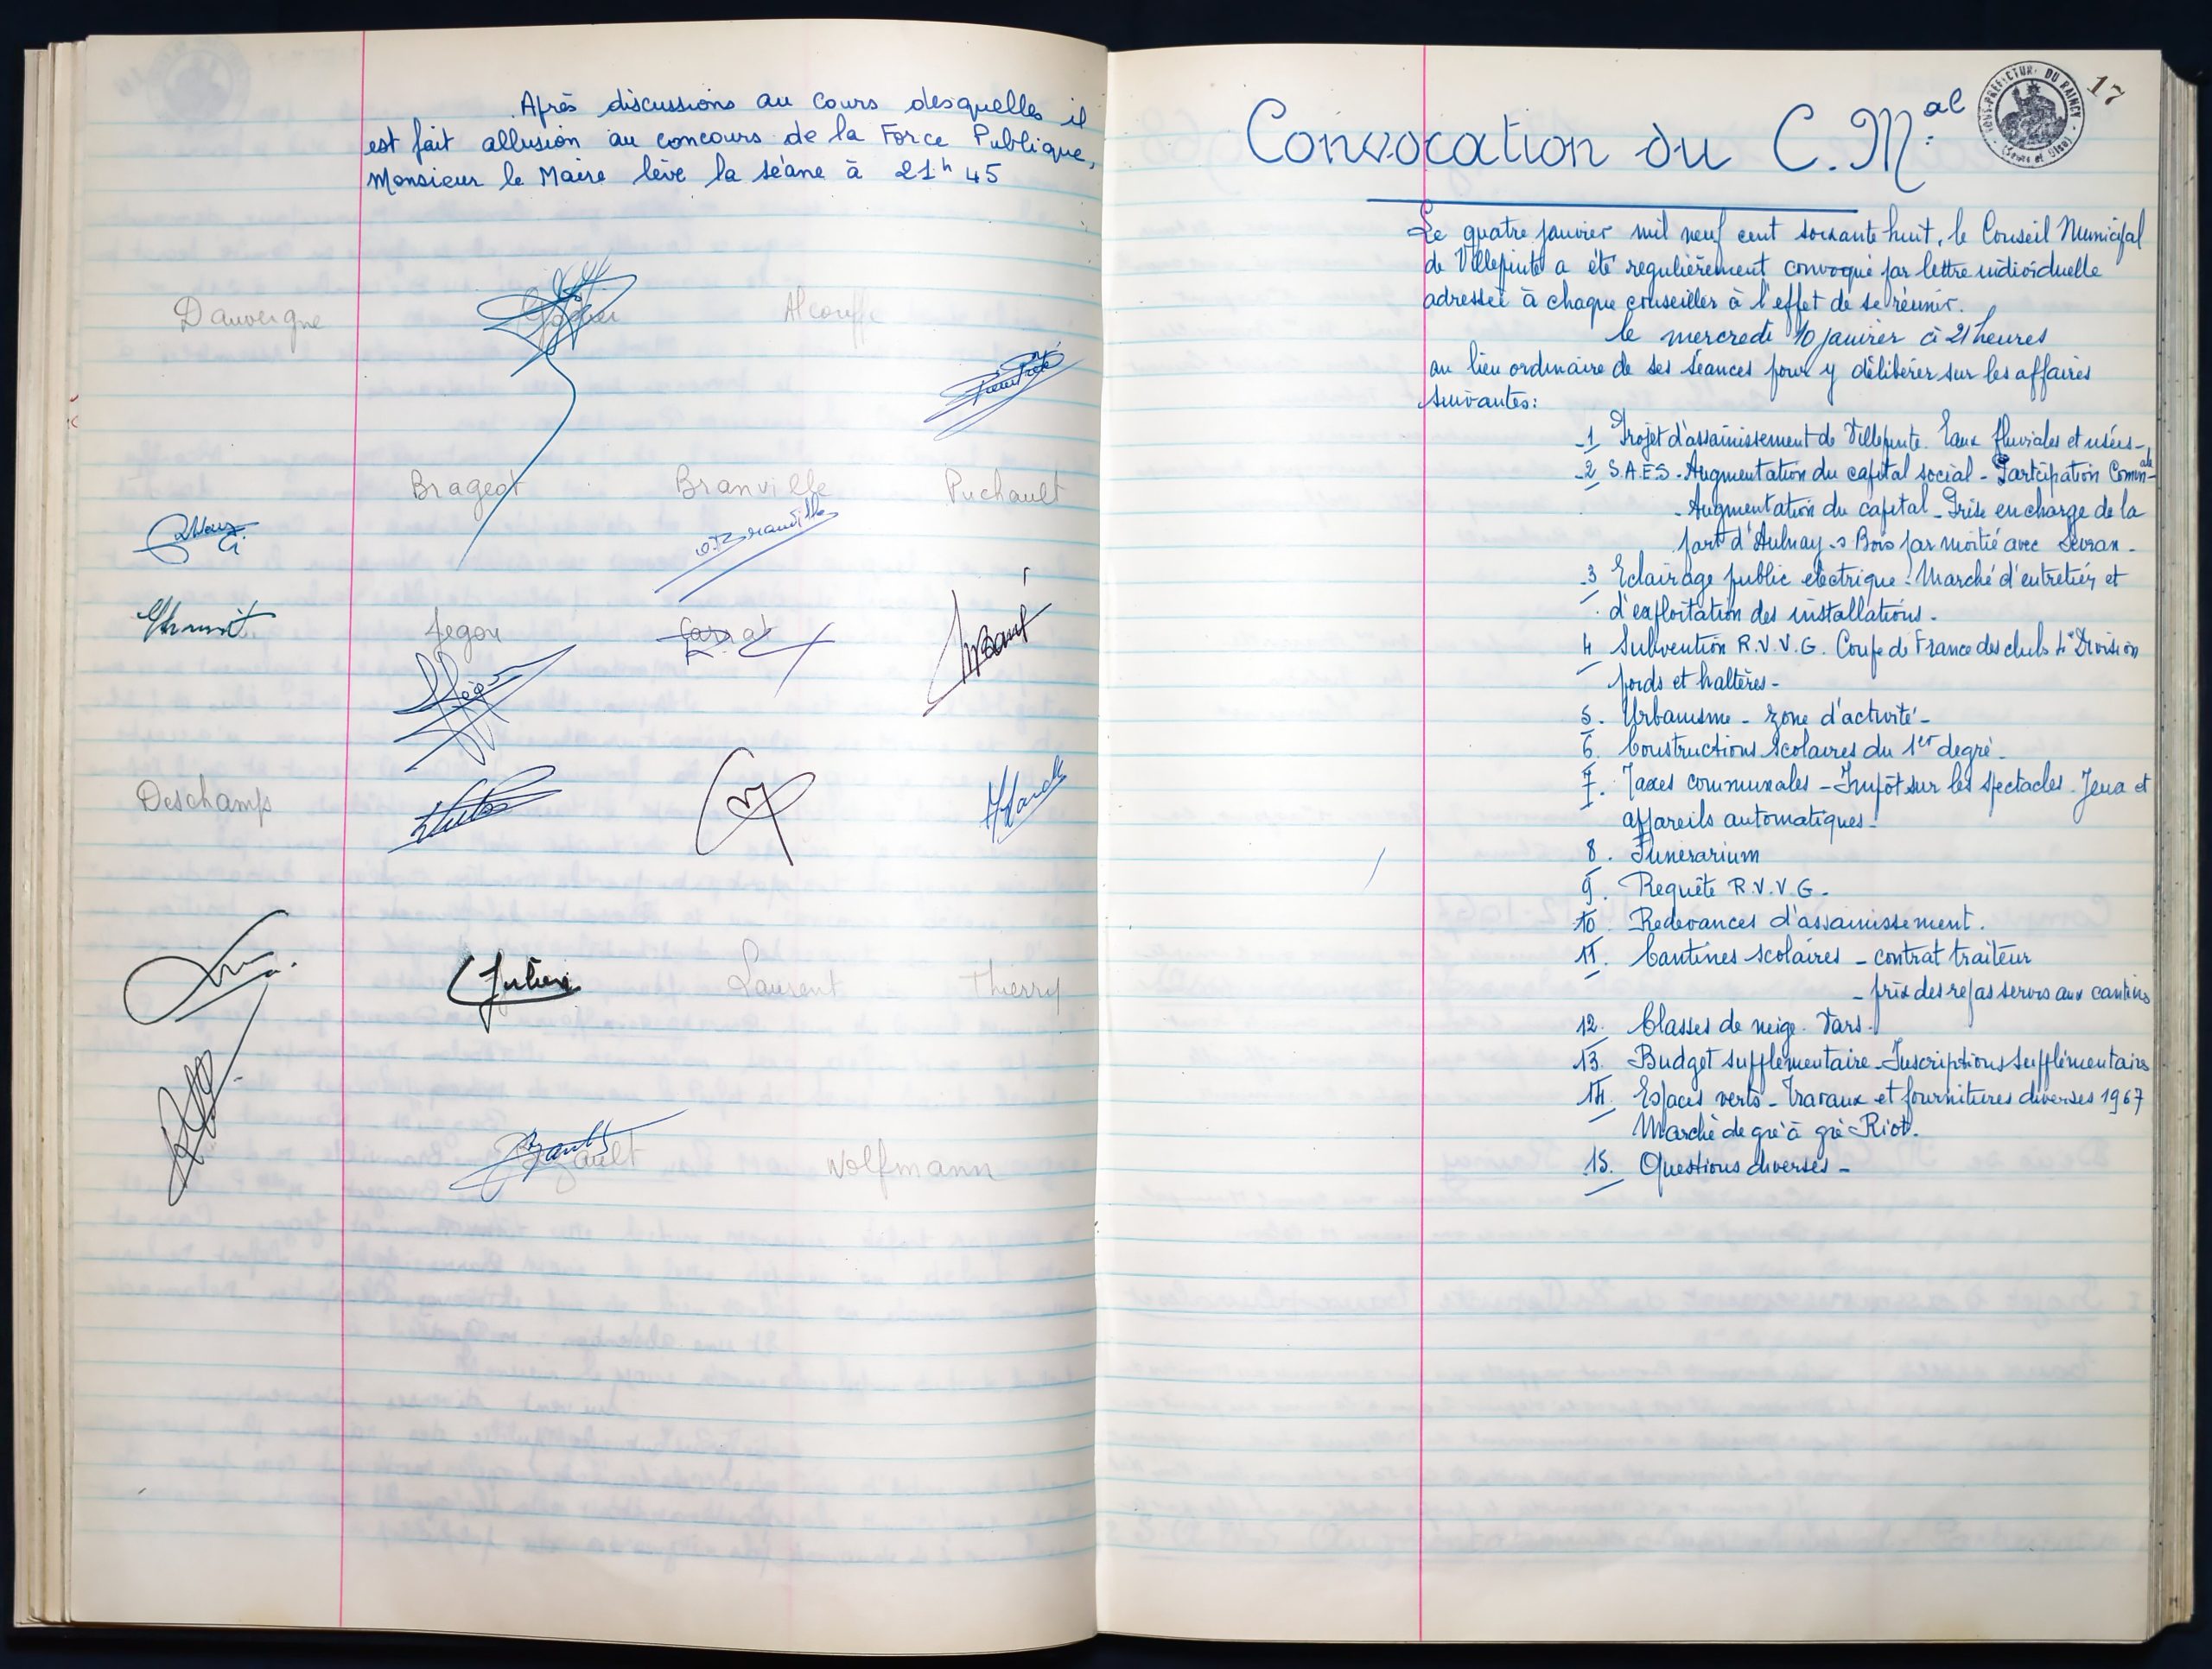 Après discussions au cours desquelles il
est fait allusion au concours de la Force Publique,
Monsieur le Maire lève la séane à 21h 45
Dauvergne Alcouffe
Brageot Branville Puchault
Branville
Jegou Carrat
Deschamp
Julien Laurent Thierry
Wolfmann
17
SOUS-PRÉFECTURE DU RAINCY
(Seine et Oise)
Convocation du C.Mal
Le quatre janvier mil neuf cent soixante huit, le Conseil Municipal
de Villepinte a été regulièrement convoqué par lettre individuelle
adressée à chaque conseiller à l'effet de se réunir.
le mercredi 10 janvier à 21 heures
au lieu ordinaire de ses séances pour y délibérer sur les affaires
suivantes:
1 Projet d'assainissement de Villepinte. Eaux fluviales et usées -
2 S.A.E.S - Augmentation du capital social - Participation Comm-ale
- Augmentation du capital - Prise en charge de la
part d'Aulnay s Bois par moitié avec Sevran -
3 Eclairage public electrique : Marché d'entretien et
d'exploitation des installations.
4 Subvention R.V.V.G. Coupe de France des clubs Division
poids et haltères -
5. Urbanisme - Zone d'activité -
6. Constructions scolaires du 1er degré.
7. Taxes communales - Impôt sur les spectacles. Jeux et
appareils automatiques -
8. Funerarium
9. Requête R.V.V.G.
10 Redevances d'assainissement.
11. Cantines scolaires - contrat traiteur
- prix des repas servis aux cantines
12. Classes de neige. Vars.
13. Budget supplémentaire - Inscriptions supplémentaires
14. Espaces verts - Travaux et fournitures diverses 1967
Marché de gré à gré Riot.
15. Questions diverses -